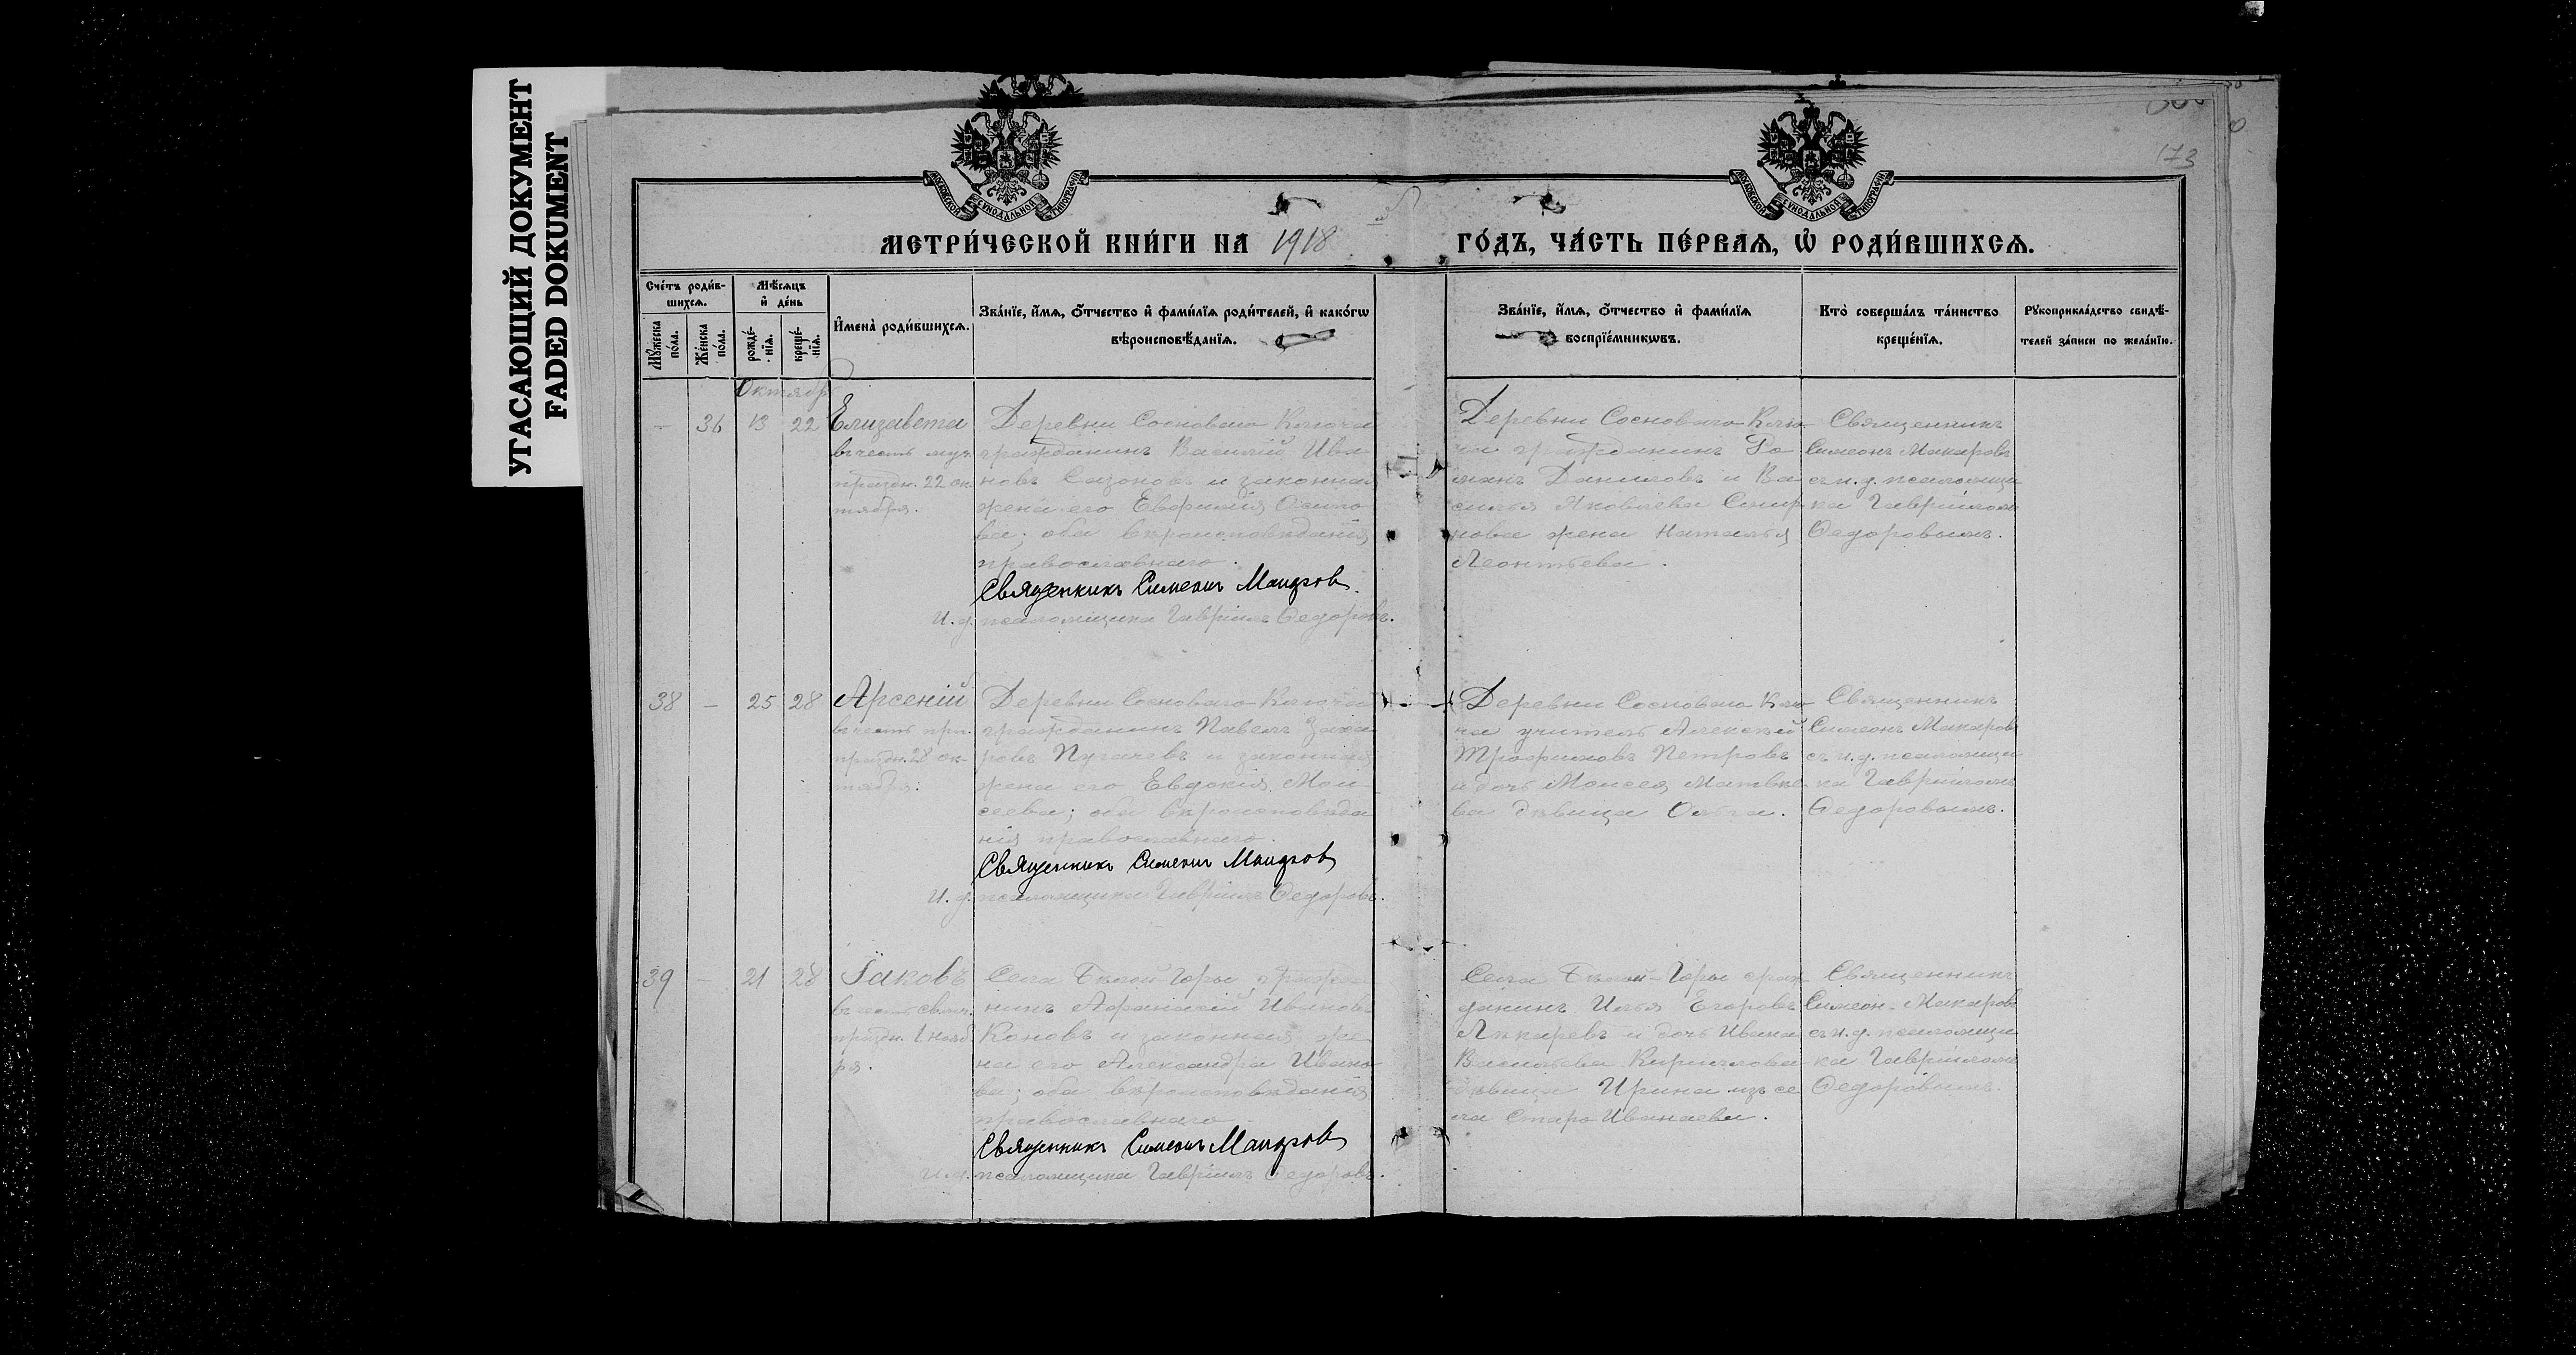 УГАСАЮЩИЙ ДОКУМЕНТ
FADED DOKUMENT
173
МОСКОВСКОЙ СѴНОДАЛЬНОЙ ТИПОГРАФІИ
МОСКОВСКОЙ СѴНОДАЛЬНОЙ ТИПОГРАФІИ
МЕТРИ́ЧЕСКОЙ КНИ́ГИ НА 1918 ГО́ДЪ, ЧА́СТЬ ПЕ́РВАЯ, Ѡ РОДИ́ВШИХСЯ.
Сче́тъ роди́в-
шихся.
Мѣ́сяцъ
и де́нь
Му́жеска
по́ла.
Же́нска
по́ла.
рожде́-
нїя.
креще́-
нїя.
И́мена̀ роди́вшихся.
Зва́нїе, и́мя, о́тчество и фами́лїя роди́телей, и како́гѡ
вѣроисповѣ́данїя.
Зва́нїе, и́мя, о́тчество и фами́лїя
воспрїе́мникѡвъ.
Кто̀ соверша́лъ та́инство
креще́нїя.
Рꙋкоприкла́дство свидѣ́-
телей за́писи по жела́нїю.
Октябр
— 36 13 22
Елизавета
въ честь муч.
праздн. 22 ок-
тября.
Деревни Сосноваго Ключа
гражданинъ Василій Ива-
новъ Сазоновъ и законная
жена его Евфимія Осипо
ва; оба вѣроисповѣданія
православнаго.
Священникъ Симеонъ Макаровъ.
И. д. псаломщика Гавріилъ Ѳедоровъ.
Деревни Сосноваго Клю-
ча гражданинъ Ро
манъ Даниловъ и Ва
силья Яковлева Смир
нова жена Наталья
Леонтьева.
Священникъ
Симеонъ Макаровъ
съ и. д. псаломщи
ка Гавріиломъ
Ѳедоровымъ.
38 — 25 28
Арсеній
въ честь пр.
праздн. 28 ок-
тября.
Деревни Сосноваго Ключа
гражданинъ Павелъ Заха
ровъ Пугачевъ и законная
жена его Евдокія Мои
сеева; оба вѣроисповѣда
нія православнаго.
Священникъ Симеонъ Макаровъ
И. д. псаломщика Гавріилъ Ѳедоровъ.
Деревни Сосноваго Клю
ча учитель Алексѣй
Трофимовъ Петровъ
и дочь Моисея Матвѣе-
ва дѣвица Ольга.
Священникъ
Симеонъ Макаровъ
съ и. д. псаломщи
ка Гавріиломъ
Ѳедоровымъ.
39 — 21 28
Іаковъ
въ честь свмч.
праздн. 1 нояб
ря.
Села Бѣлой Горы, гражда-
нинъ Афанасій Ивановъ
Коновъ и законная же
на его Александра Ивано
ва; оба вѣроисповѣданія
православнаго
Священникъ Симеонъ Макаровъ
И. д. псаломщика Гавріилъ Ѳедоровъ.
Села Бѣлой-Горы граж
данинъ Илья Егоровъ
и дочь Ивана
Васильева Кириллова
дѣвица Ирина изъ се
ла Старо Иванаева.
Священникъ
Симеонъ Макаровъ
съ и. д. псаломщи
ка Гавріиломъ
Ѳедоровымъ.